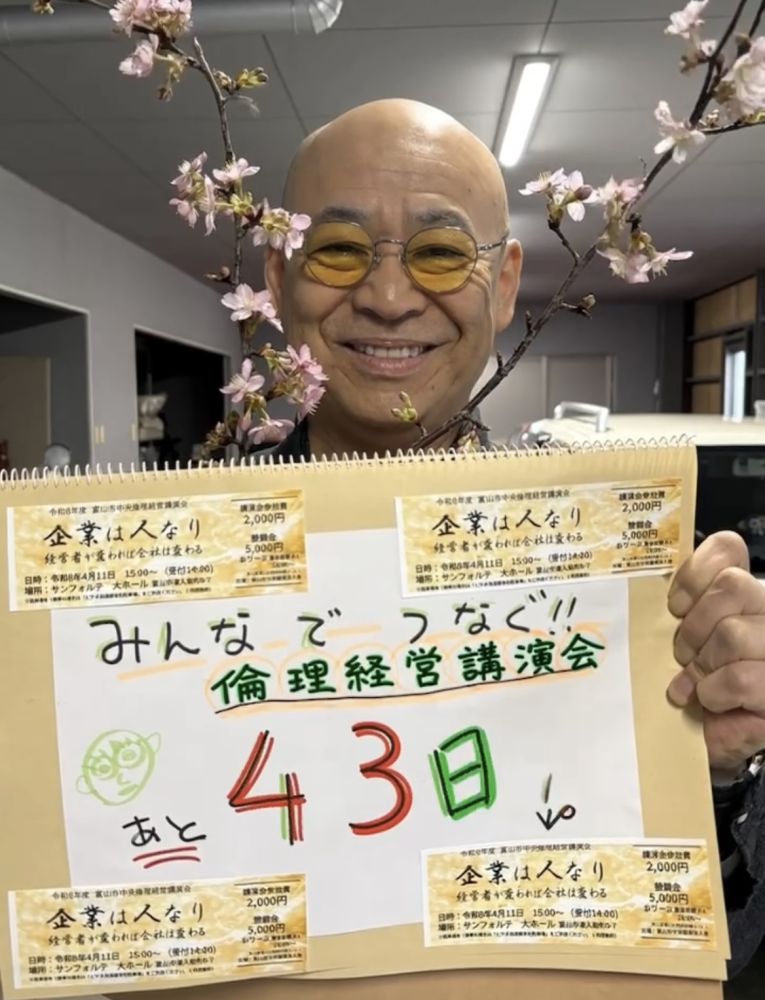 令和8年度 富山市中央倫理経営講演会
企業は人なり
経営者が変われば会社は変わる
日時：令和8年4月11日 15:00～（受付14:00）
場所：サンフォルテ 大ホール
講演会参加費
2,000円
懇親会
5,000円
令和8年度 富山市中央倫理経営講演会
企業は人なり
経営者が変われば会社は変わる
日時：令和8年4月11日 15:00～（受付14:00）
場所：サンフォルテ 大ホール
講演会参加費
2,000円
5,000円
みんなでつなぐ!!
倫理経営講演会
あと43日
令和8年度 富山市中央倫理経営講演会
企業は人なり
経営者が変われば会社は変わる
日時：令和8年4月11日 15:00～（受付14:00）
場所：サンフォルテ 大ホール
講演会参加費
2,000円
5,000円
令和8年度 富山市中央倫理経営講演会
企業は人なり
経営者が変われば会社は変わる
日時：令和8年4月11日 15:00～（受付14:00）
場所：サンフォルテ 大ホール
講演会参加費
2,000円
5,000円